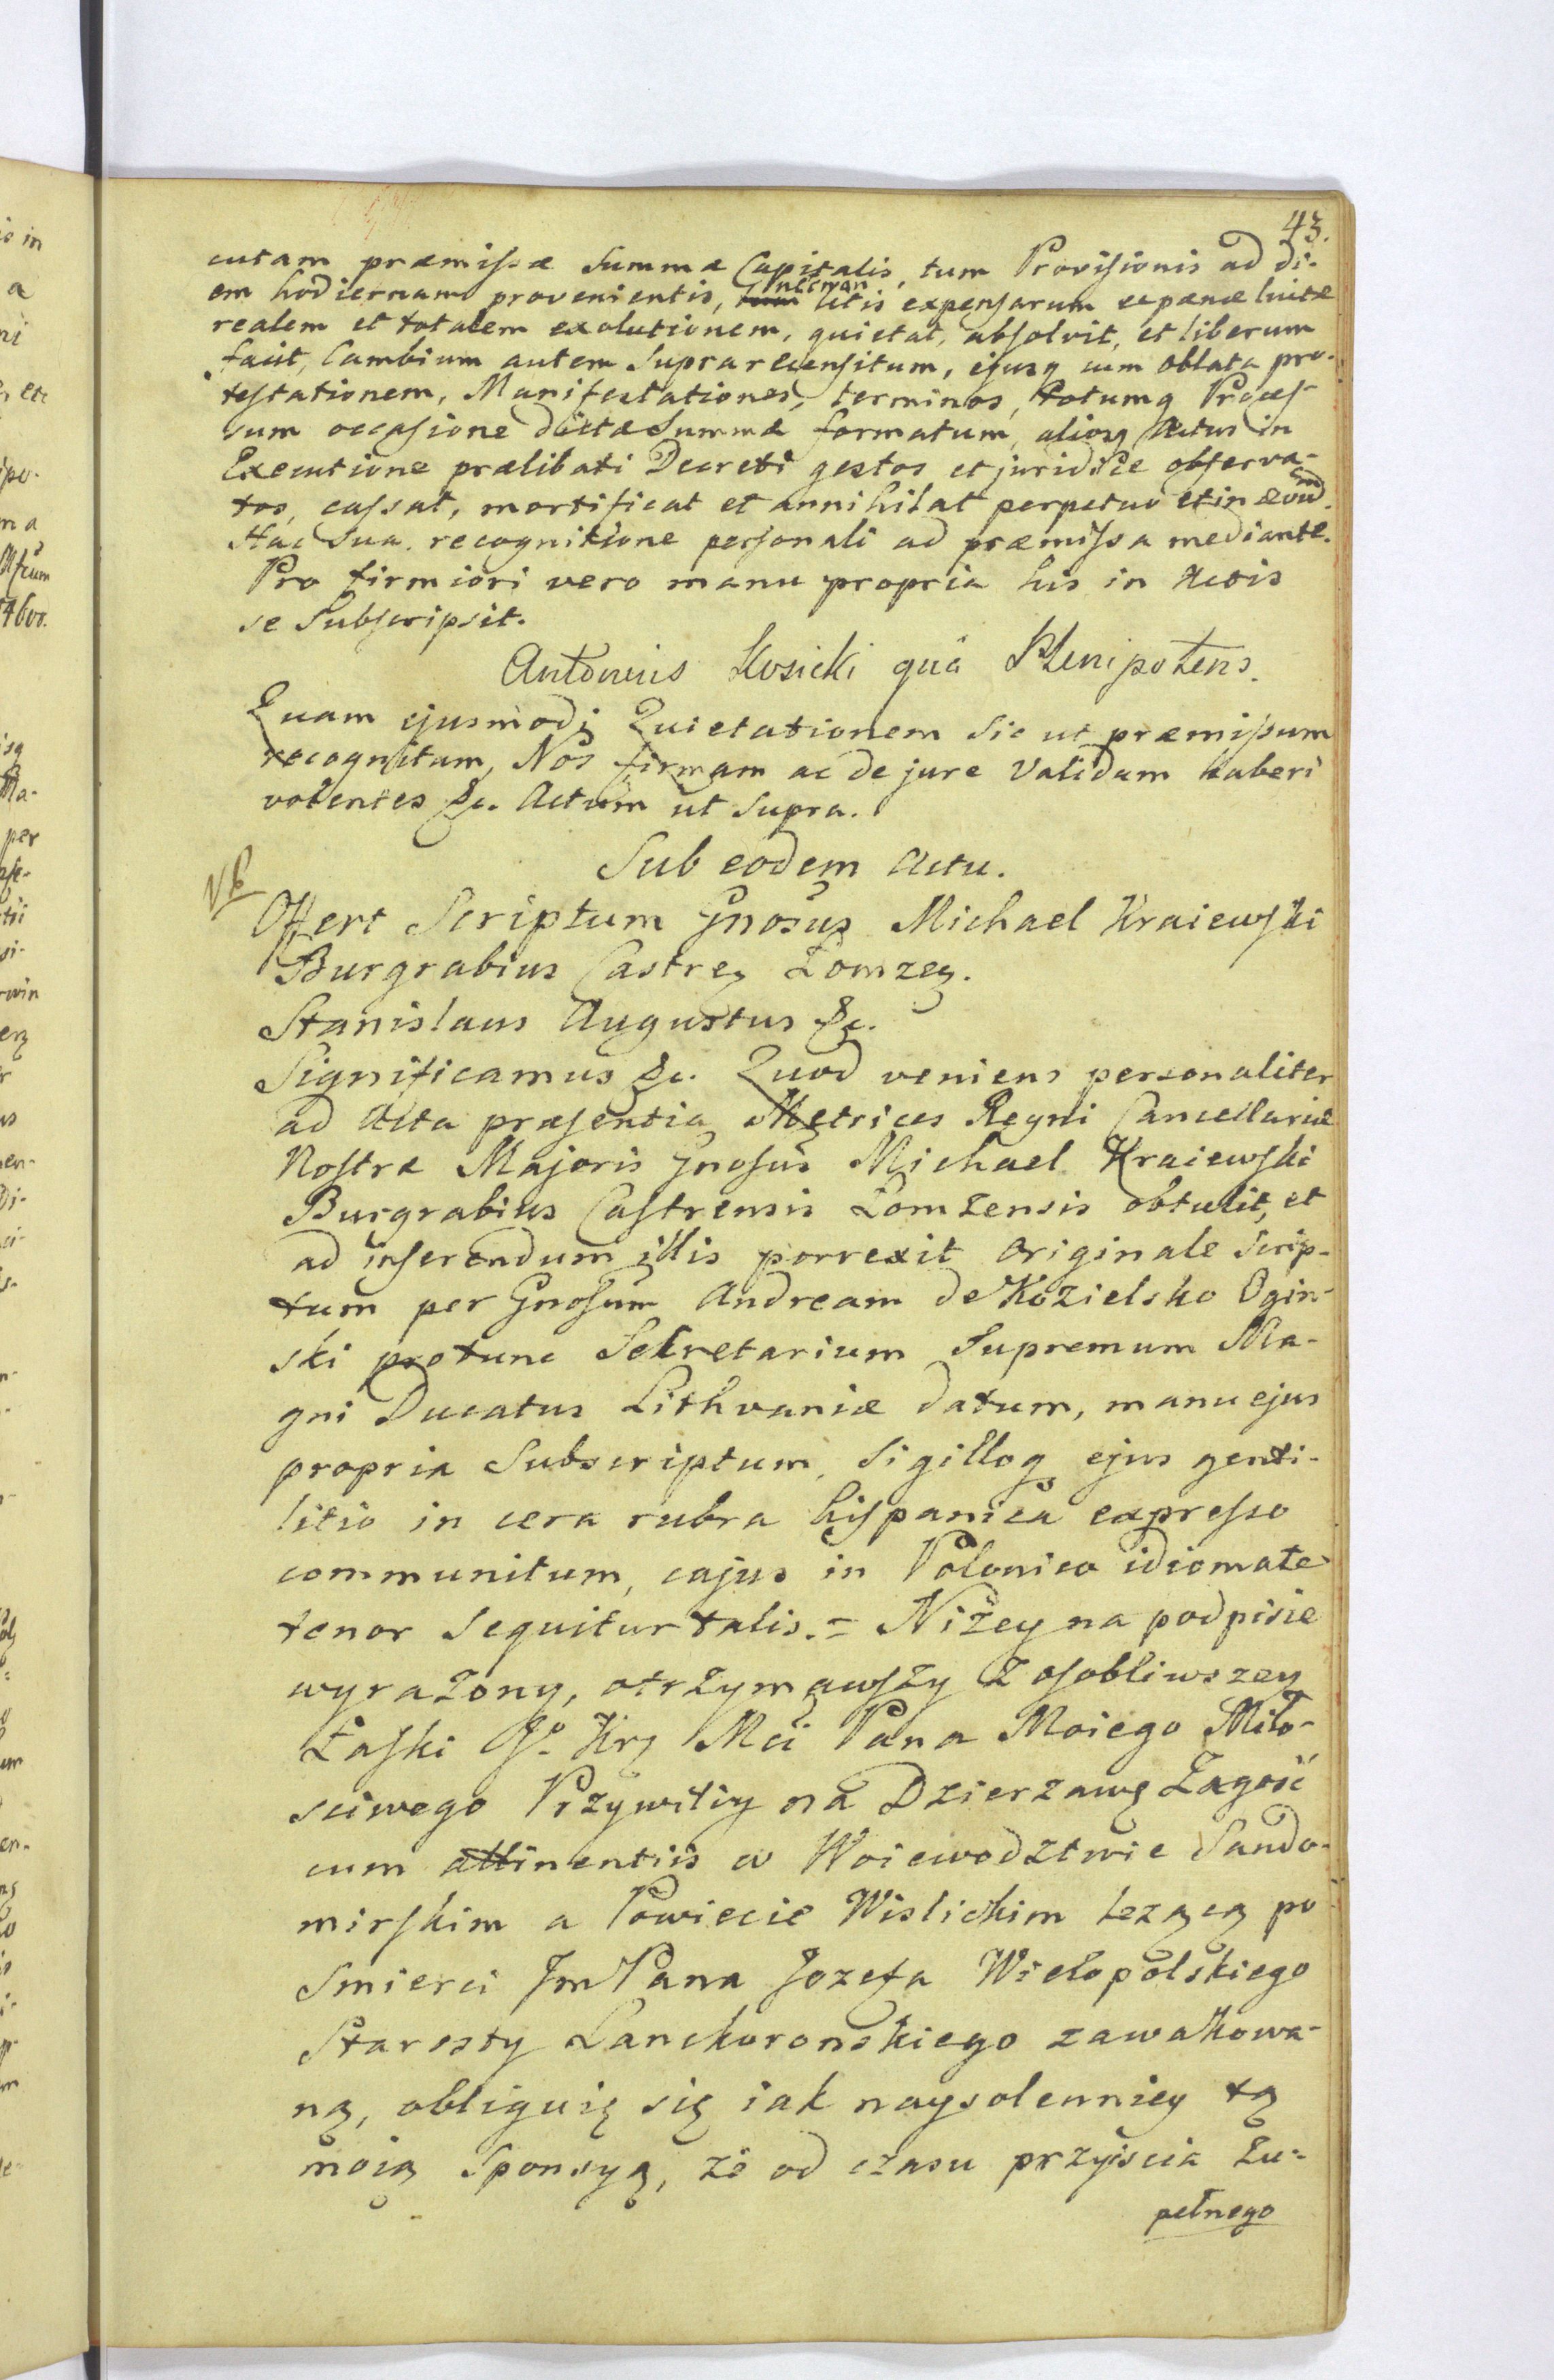 43.
cutam præmissæ Summæ Capitalis, tum Provisionis ad di-
em hodiernam provenientis, necnon litis expensarum ac pænæ luitæ
realem et totalem exolutionem, quietat, absolvit, et liberum
facit, Cambium autem Suprarecensitum, ejusq cum oblata pro-
testationem, Manifestationes, terminos, totumq Proces-
sum occasione dictæ Summæ formatum, aliosq Actus in
Executione prælibati Decreti gestos et juridice observa-
tos, cassat, mortificat et annihilat perpetuo et in ævum.
Hac sua recognitione personali ad præmissa mediante.
Pro firmiori vero manu propria his in Actis
se Subscripsit.
Antonius Kosicki quà Plenipotens.
Quam ejusmodi Quietationem Sic ut præmissum
recognitam, Nos firmam ac de jure Validam haberi
volentes &c. Actum ut Supra.
Sub eodem Actu.
NB
Offert Scriptum Gnosus Michael Kraiewski
Burgrabius Castren Łomzen.
Stanislaus Augustus &c.
Significamus &c. Quod veniens personaliter
ad Acta præsentia Metrices Regni Cancellariæ
Nostræ Majoris Gnosus Michael Kraiewski
Burgrabius Castrensis Łomzensis obtulit, et
ad inserendum illis porrexit Originale Scrip-
tum per Gnosum Andream de Kozielsko Ogin-
ski protunc Sekretarium Supremum Ma-
gni Ducatus Lithvaniæ datum, manu ejus
propria Subscriptum, Sigilloq ejus genti-
litio in cera rubra hispanica expresso
communitum, cujus in Polonico idiomate
tenor Sequitur talis.= Niżey na podpisie
wyrażony, otrzymawszy z osobliwszey
Łaski Jo Krz Mci Pana Moiego Miło-
sciwego Przywiley na Dzierzawę Zagość
cum attinentiis w Woiewodztwie Sando-
mirskim a Powiecie Wislickim lezącą po
Smierci Jm Pana Jozefa Wielopolskiego
Starosty Lanckoronskiego zawakowa-
ną, obliguię się iak naysolenniey tą
moią Sponsyą, że od czasu przyiscia Zu-
pełnego